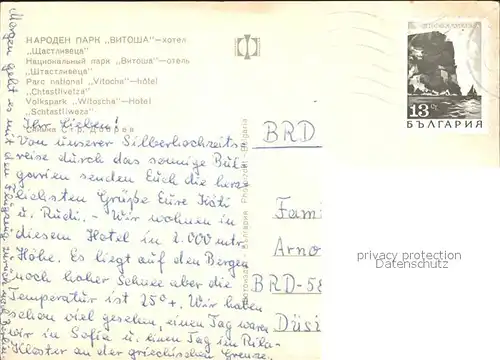 НАРОДЕН ПАРК „ВИТОША"—хотел
„Щастливеца"
Национальный парк „Витоша"—отель
„Штастливеца"
Parc national „Vitocha"—hôtel
„Chtastlivetza"
Volkspark „Witoscha"—Hotel
„Schtastliweza"
Снимка Стр. Добрев
Ihr Lieben!
Von unserer Silberhochzeits-
reise durch das sonnige Bul-
garien senden Euch die herz-
lichsten Grüße Eure Käti
u. Rudi. - Wir wohnen in
diesem Hotel in 2.000 mtr
Höhe. Es liegt auf den Bergen
noch hoher Schnee aber die
Temperatur ist 25°+. Wir haben
schon viel gesehen, einen Tag waren
wir in Sofia u. einen Tag im Rila-
Kloster an der griechischen Grenze.
Morgen geht es mit dem Flugzeug zurück nach
Фотоиздат - България Photoizdat - Bulgaria
13 СТ.
БЪЛГАРИЯ
BRD
Fami
Arno
BRD-58
Düsi
privacy protection
Datenschutz